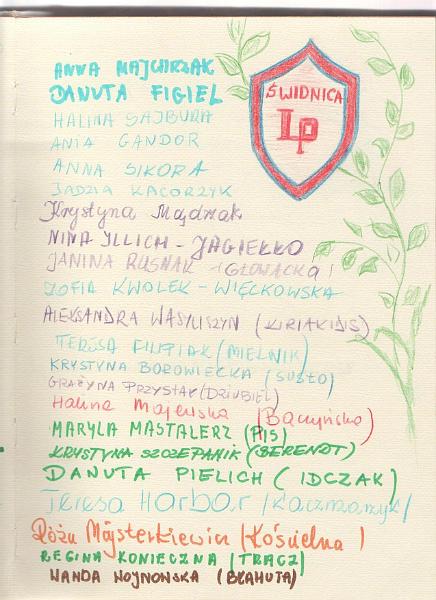 ANNA MAJCHRZAK
DANUTA FIGIEL
ŚWIDNICA
LP
HALINA SAJBURA
ANIA GANDOR
ANNA SIKORA
JADZIA KACORZYK
Krystyna Mądrzak
NINA ILLICH - JAGIEŁŁO
JANINA RUSNAK (GŁOWACKA)
ZOFIA KWOLEK - WIĘCKOWSKA
ALEKSANDRA WASYLISZYN (KIRIAKIDIS)
TERESA FILIPIAK (MIELNIK)
KRYSTYNA BOROWIECKA (SUSŁO)
GRAŻYNA PRZYSTAV (DZIUBIEL)
Halina Majewska (Baczyńska)
MARYLA MASTALERZ (PIS)
KRYSTYNA SZCZEPANIK (BERENDT)
DANUTA PIELICH (IDCZAK)
Teresa Harbar /Kaczmarzyk/
Róża Majsterkiewicz (Kościelna)
REGINA KONIECZNA (TRACZ)
WANDA WOJNOWSKA (BŁAHUTA)